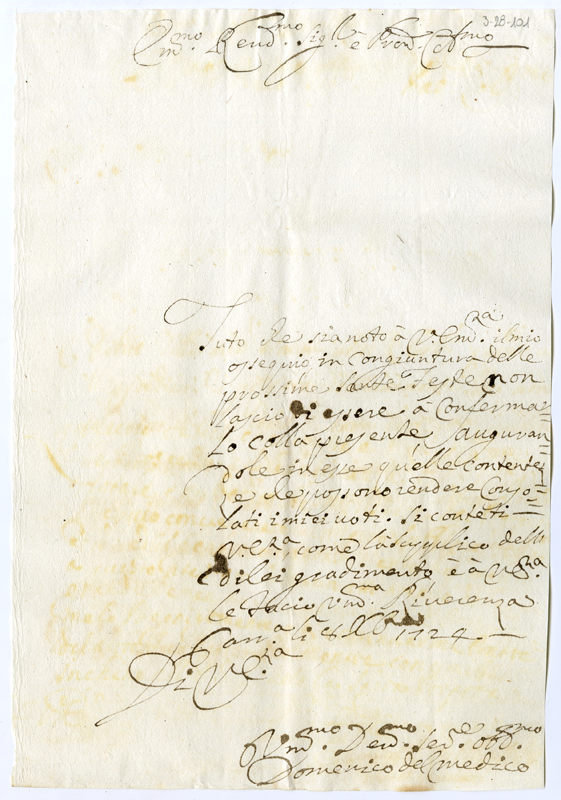 3-28-101
Em.mo Rend.mo Sig.r e Pron. Col.mo
Tuto che sia noto à V. Em.za il mio
ossequio in congiuntura delle
prossime Sante Feste non
lascio di essere à Conferma=
Lo colla presente Sauguran=
dole in esse quelle contente=
ze che possono rendere Conso=
lati i miei voti. Si contenti
V.Em.za, come la supplico dello
di lei gradimento, è à V.Em.za
le facio Vm.ma Riverenza
Carr.a li 8 Xb 1724
Di V.E.za
Vm.mo Deu.mo Ser.e obb.mo
Domenico del medico